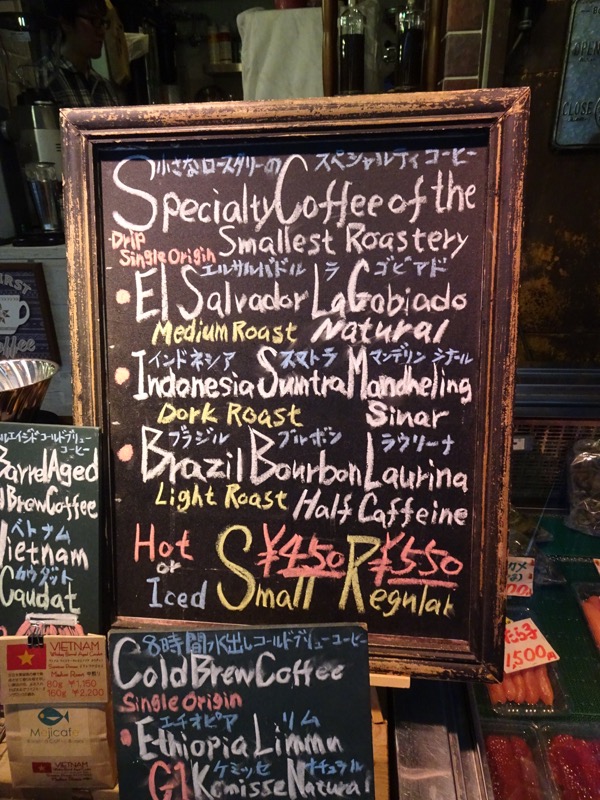 小さなロースタリーの スペシャルティ コーヒー
Specialty Coffee of the
Smallest Roastery
Drip
Single Origin
エルサルバドル ラ ゴビアド
El Salvador La Gobiado
Medium Roast Natural
インドネシア スマトラ マンデリン シナール
Indonesia Sumtra Mandheling
Dark Roast Sinar
ブラジル ブルボン ラウリーナ
Brazil Bourbon Laurina
Light Roast Half Caffeine
Hot or Iced
¥450 ¥550
Small Regular
エイジドコールドブリュー
コーヒー
Barrel Aged
Brew Coffee
ベトナム
Vietnam
カウダット
Caudat
VIETNAM
80g ¥1,150
160g ¥2,200
Mojicafe
VIETNAM
8時間水出しコールドブリューコーヒー
Cold Brew Coffee
Single Origin
エチオピア リム
Ethiopia Limmu
ケミッセ ナチュラル
G1 Kemisse Natural
OPEN
CLOSE
たらこ
1,500円